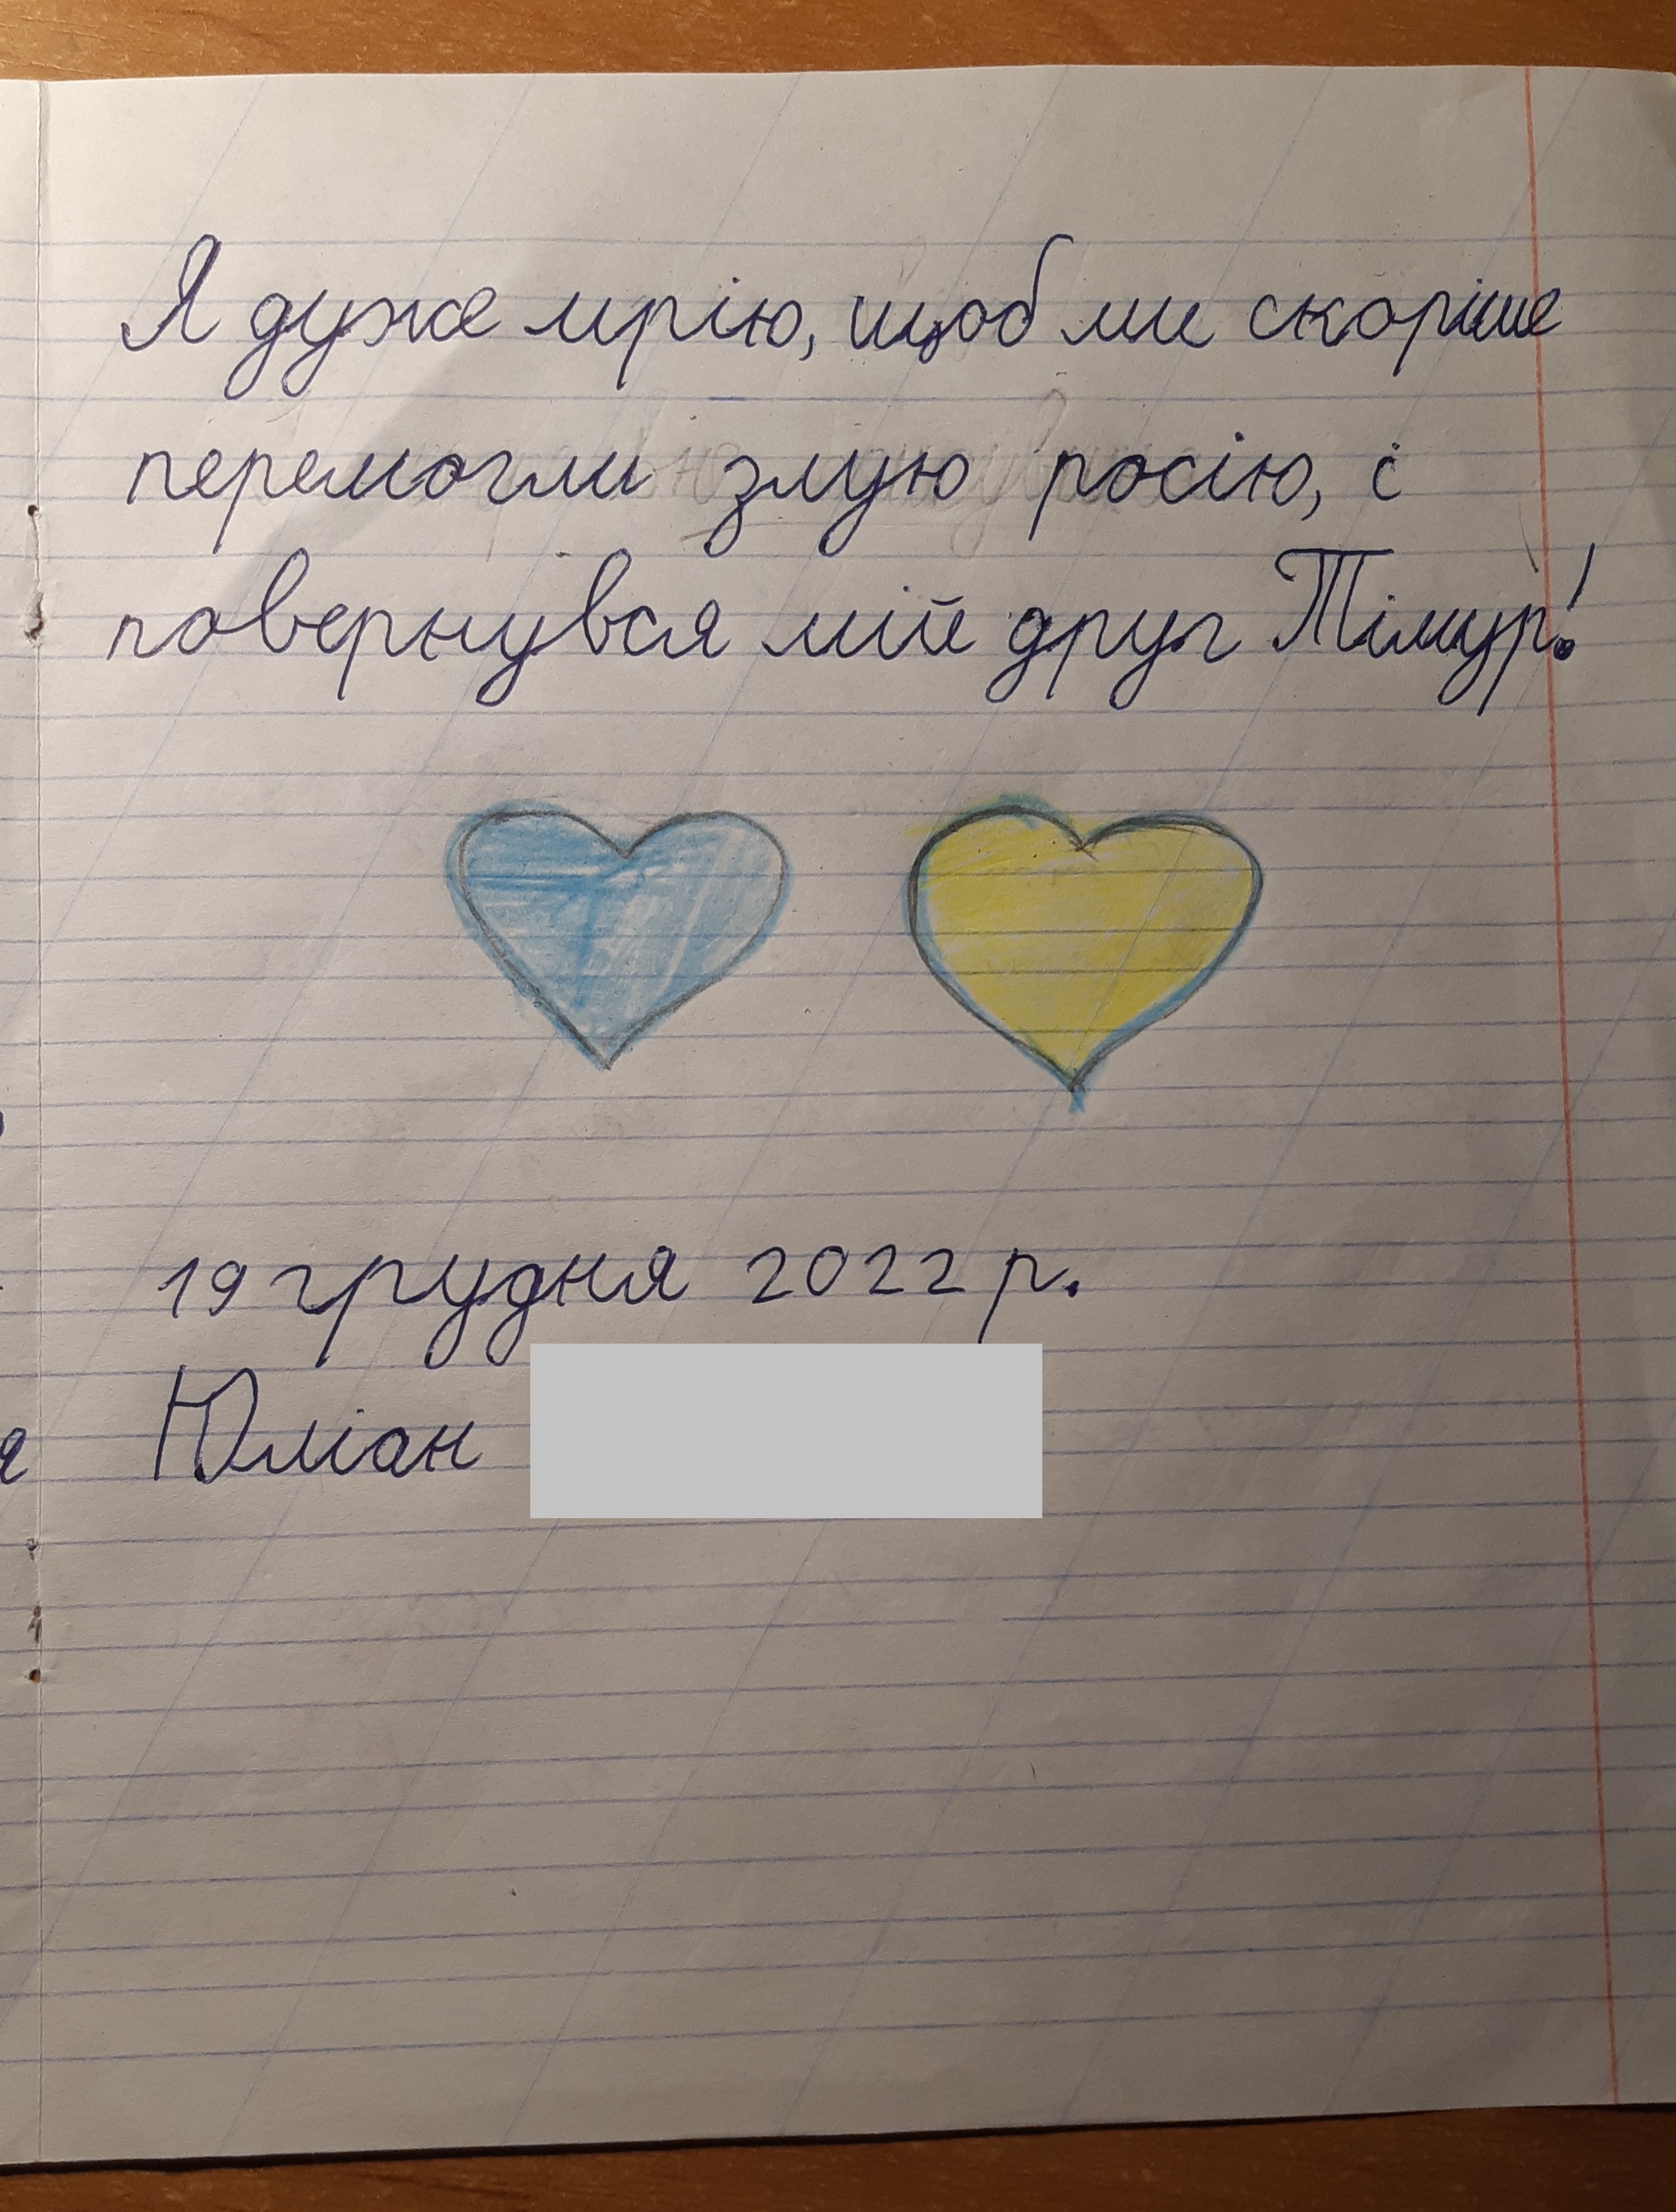 Я дуже мрію, щоб ми скоріше
перемогли злую росію, і
повернувся мій друг Тімур!
19 грудня 2022 р.
Юліан